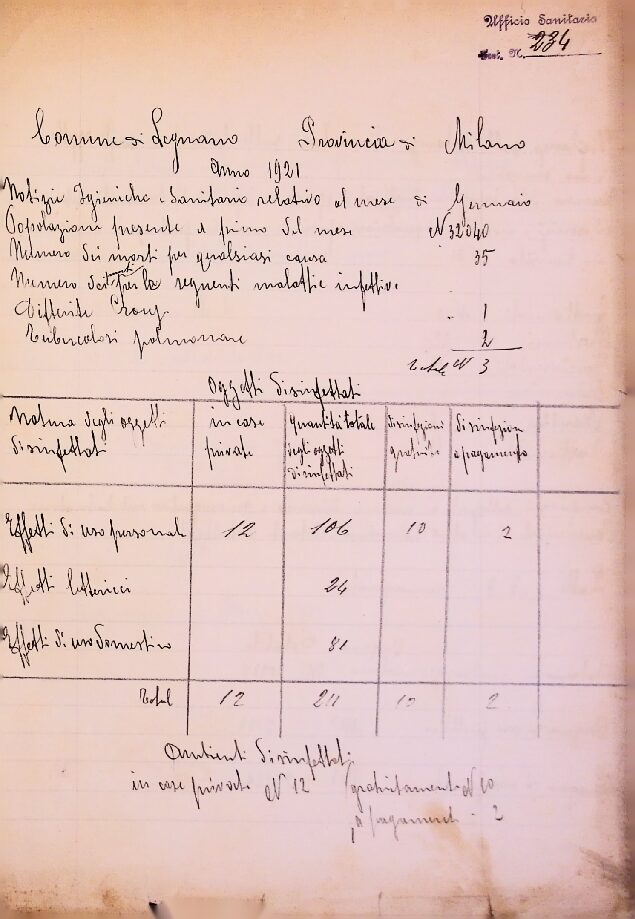 Ufficio Sanitario
Prot. N. 234
Comune di Legnano Provincia di Milano
Anno 1921
Notizie Igieniche e Sanitario relativo al mese di Gennaio
Popolazione presente a primo del mese N 32040
Numero dei morti per qualsiasi causa 35
Numero dei morti per le seguenti malattie infettive
Difterite Croup " 1
Tubercolosi polmonare 2
Totale N 3
Oggetti Disinfettati
Natura degli oggetti disinfettati
in case private
Quantità totale degli oggetti disinfettati
Disinfezioni gratuite
Disinfezioni a pagamento
Effetti di uso personale 12 106 10 2
Effetti letterecci 24
Effetti di uso domestico 81
Total 12 211 10 2
Ambienti Disinfettati
in case private N 12 gratuitamente N 10
a pagamento 2